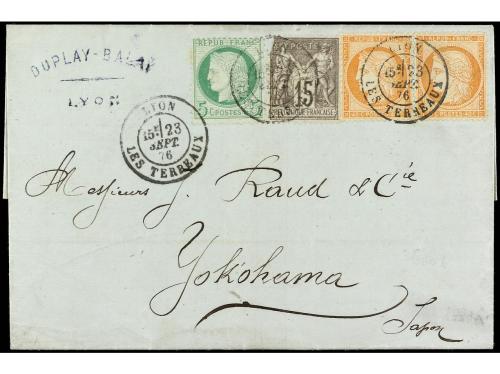 DUPLAY-BALAY
LYON
REPUB. FRANC.
5 C POSTES 5 C
POSTE
15
QUE FRANÇAISE
LYON
23
SEPT.
76
LES TERREAUX
LYON
23
SEPT.
76
LES TERREAUX
Messieurs J. Raud & Cie
Yokohama
Japon